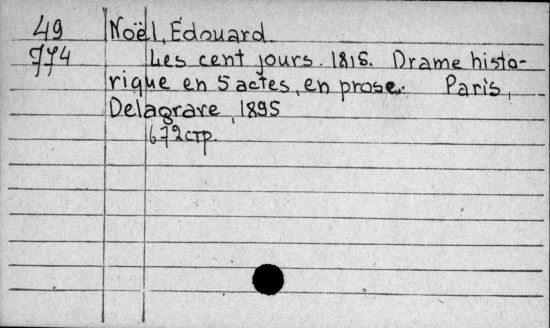 49 Noël, Édouard.
774 Les cent jours. 1815. Drame histo-
rique en 5 actes, en prose. Paris,
Delagrave, 1895
672 стр.